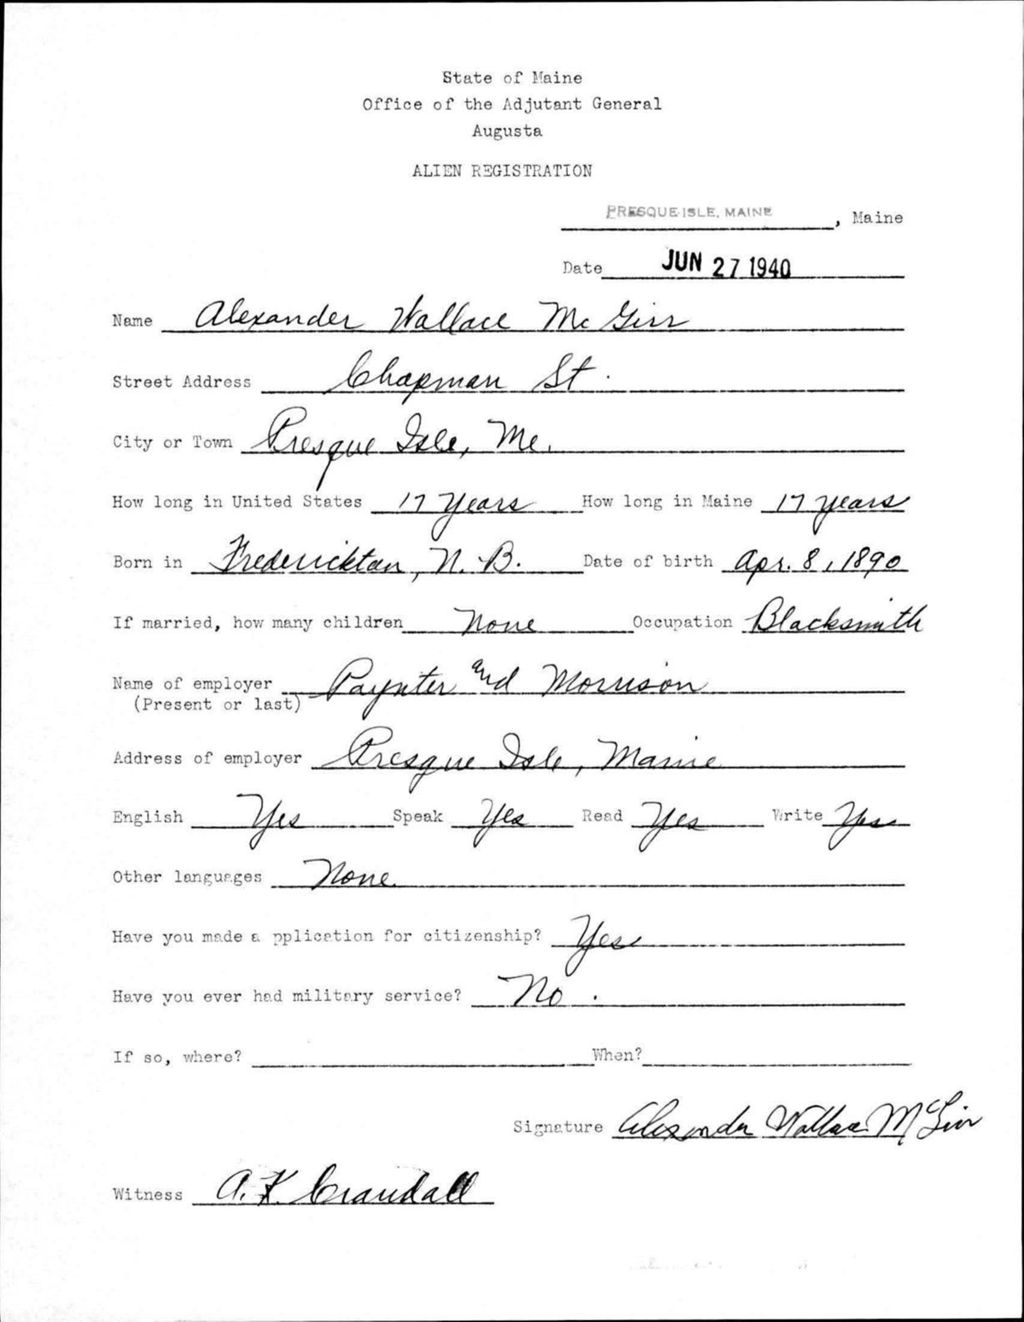 State of Maine
Office of the Adjutant General
Augusta
ALIEN REGISTRATION
PRESQUE ISLE, MAINE, Maine
Date JUN 27 1940
Name Alexander Wallace Mc Girr
Street Address Chapman St.
City or Town Presque Isle, Me.
How long in United States 17 Years How long in Maine 17 years
Born in Fredericktan, N. B. Date of birth Apr. 8, 1890
If married, how many children None Occupation Blacksmith
Name of employer Paynter and Morrison
(Present or last)
Address of employer Presque Isle, Maine
English Yes Speak Yes Read Yes Write Yes
Other languages None
Have you made a pplication for citizenship? Yes
Have you ever had military service? No.
If so, where? When?
Signature Alexander Wallace McGirr
Witness A. K Crandall